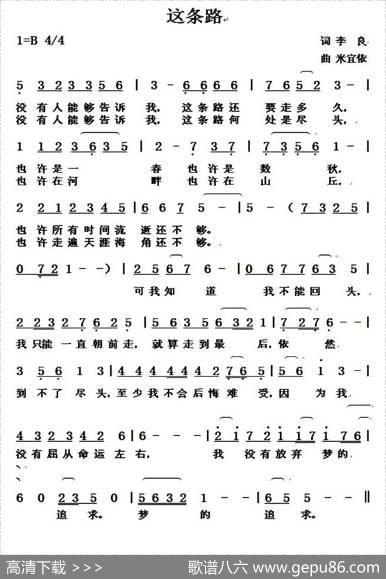 这条路
1=B 4/4
词 李 良
曲 米宜依
5 3 2 3 3 5 6 | 3 - 6 6 6 6 | 7 6 5 2 3 - |
没 有 人 能 够 告 诉 我，这 条 路 还 要 走 多 久，
没 有 人 能 够 告 诉 我，这 条 路 何 处 是 尽 头，
1 1 2 3 6 3 5
也 许 是 一 春 也 许 是 数 秋，
也 许 在 河 畔 也 许 在 山 丘，
2 2 1 2 3 4 5 | 6 6 7 5 - | 5 - ( 7 3 2 5 |
也 许 所 有 时 间 流 逝 还 不 够。
也 许 走 遍 天 涯 海 角 还 不 够。
0 7 2 1 - - ) | 2 5 6 7 6 - | 0 6 7 7 6 3 5 |
可 我 知 道 我 不 能 回 头，
2 2 2 3 2 7 6 2 5 | 5 6 3 5 5 6 3 2 1 | 7 2 7 6 - - |
我 只 能 一 直 朝 前 走，就 算 走 到 最 后，依 然
到 不 了 尽 头，至 少 我 不 会 后 悔 难 受，因 为 我
4 3 2 3 4 2 6 | 6 - - 2
没 有 屈 从 命 运 左 右， 我 没 有 放 弃 梦 的
6 0 2 3 5 0 | 5 6 3 2 3 - | 3 - - - |
追 求。 梦 的 追 求。
高清下载 > > >
歌谱八六 www.gepu86.com